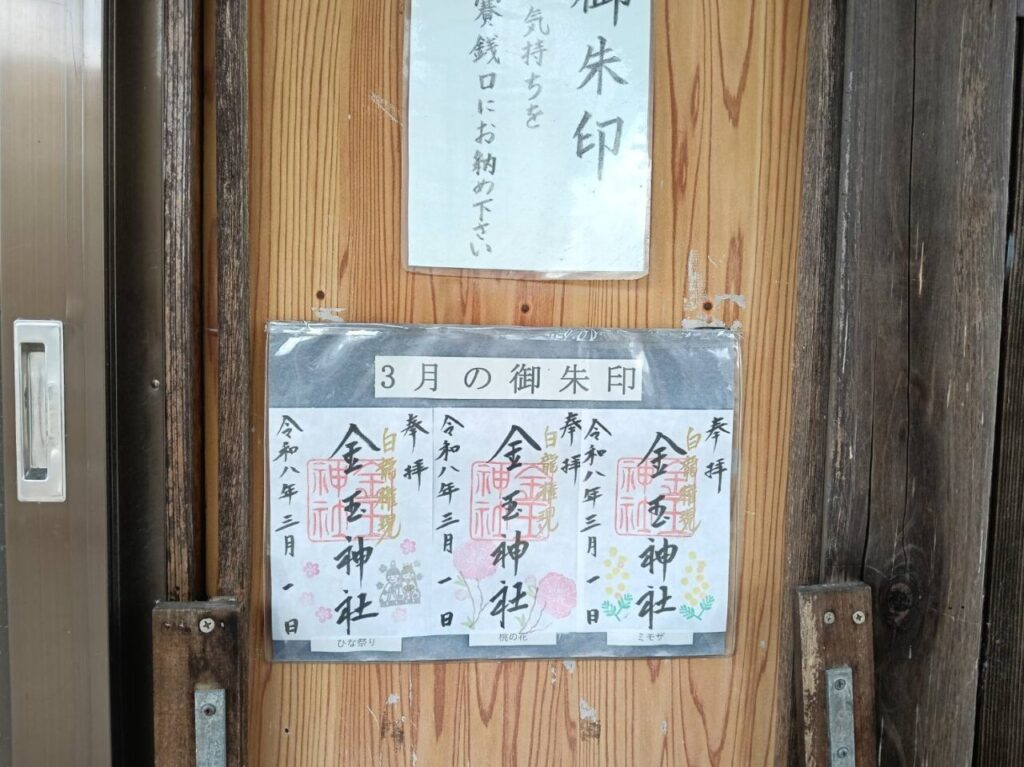 御朱印
気持ちを
賽銭口にお納め下さい
3月の御朱印
奉拝
白龍権現
金玉神社
令和八年三月一日
ひな祭り
奉拝
白龍権現
金玉神社
令和八年三月一日
桃の花
奉拝
白龍権現
金玉神社
令和八年三月一日
ミモザ